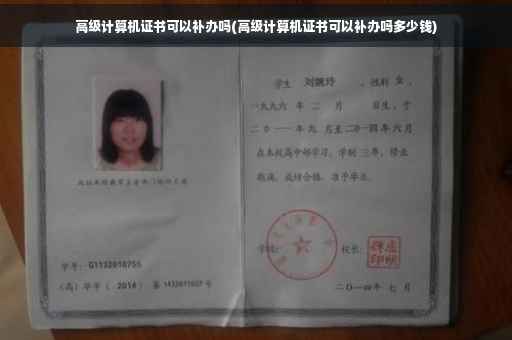 高级计算机证书可以补办吗(高级计算机证书可以补办吗多少钱)
学生 刘婉玲 ，性别 女 ，
一九九六 年 二 月 日生，于
二〇一一 年 九 月至 二〇一四 年 六 月
在本校高中部学习，学制 三 年，修业
期满，成绩合格，准予毕业。
学校：
校长：
学号：G1132010755
(高) 毕字 ( 2014 ) 第 1432011027 号
二〇一四 年 七 月